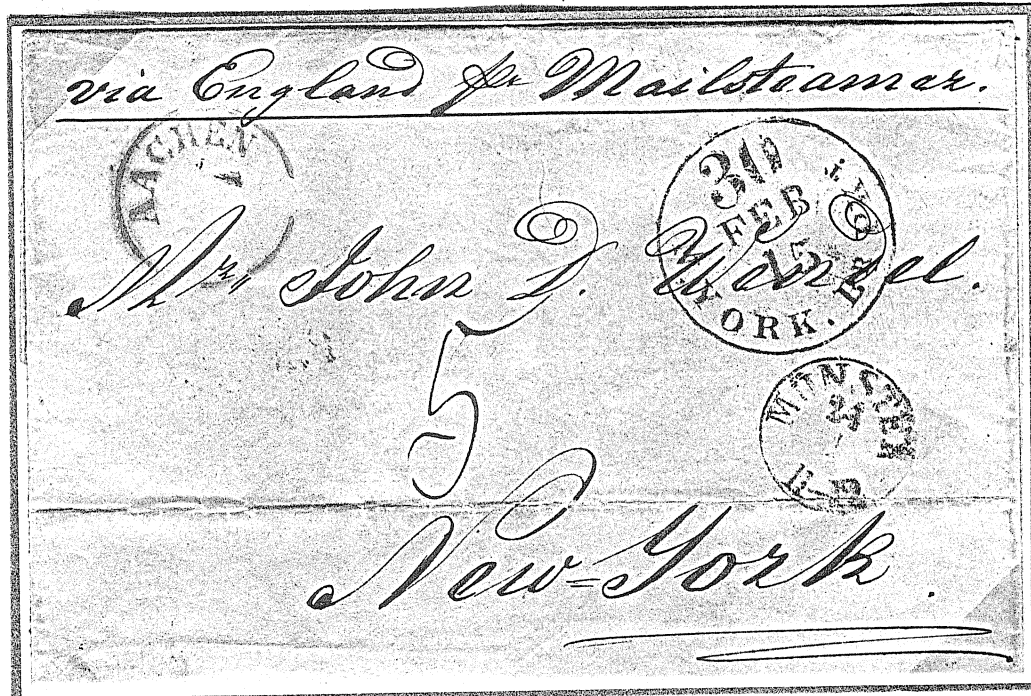 via England pr Mailsteamer.
AACHEN
30
FEB
15
YORK.
Mr. John D.
5
MÜNSTER
24
New=York.